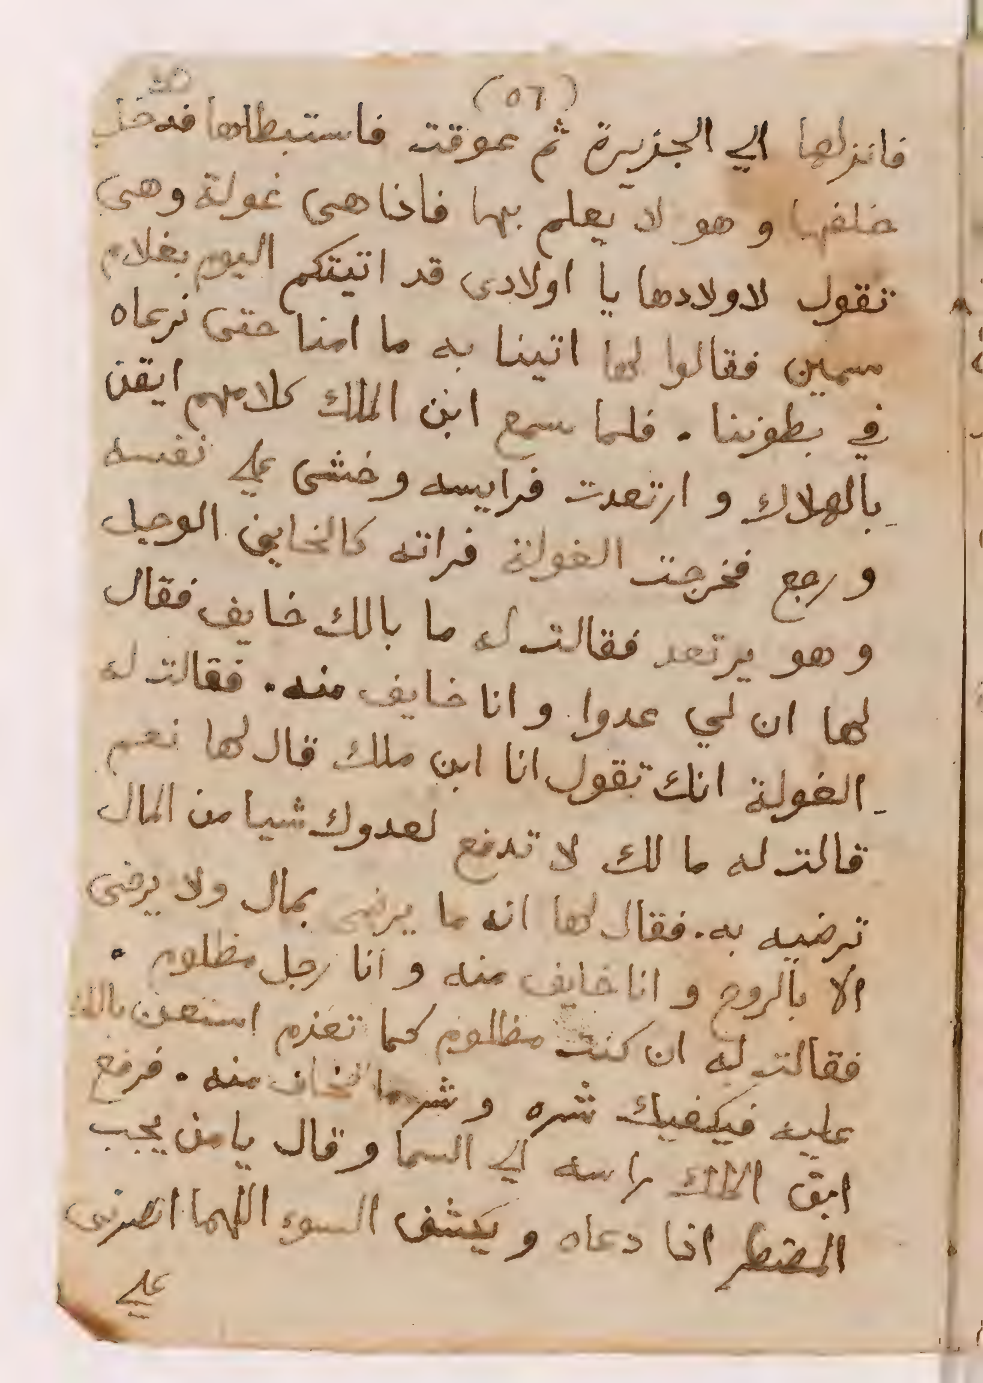 (٥٦)
فانزلها الي الجزيرة ثم عوقت فاستبطاها فدخل
خلفها و هو لا يعلم بها فاذا هى غولة وهى
تقول لاولادها يا اولادى قد اتيتكم اليوم بغلام
سمين فقالوا لها اتينا به ما امنا حتى نرعاه
في بطوننا . فلما سمع ابن الملك كلامهم ايقن
بالهلاك و ارتعدت فرايسه و خشى علي نفسه
و رجع فخرجت الغولة فراته كالخايف الوجل
و هو يرتعد فقالت له ما بالك خايف فقال
لها ان لي عدوا و انا خايف منه . فقالت له
الغولة انك تقول انا ابن ملك قال لها نعم
قالت له ما لك لا تدفع لعدوك شيا من المال
ترضيه به . فقال لها انه ما يرضى بمال ولا يرضى
الا بالروح و انا خايف منه و انا رجل مظلوم .
فقالت له ان كنت مظلوم كما تعزم استعن بالله
عليه فيكفيك شره و شر ما تخاف منه . فرفع
ابن الملك راسه الي السما و قال يا من يجب
المضطر اذا دعاه و يكشف السوء اللهما انصرنى
علي